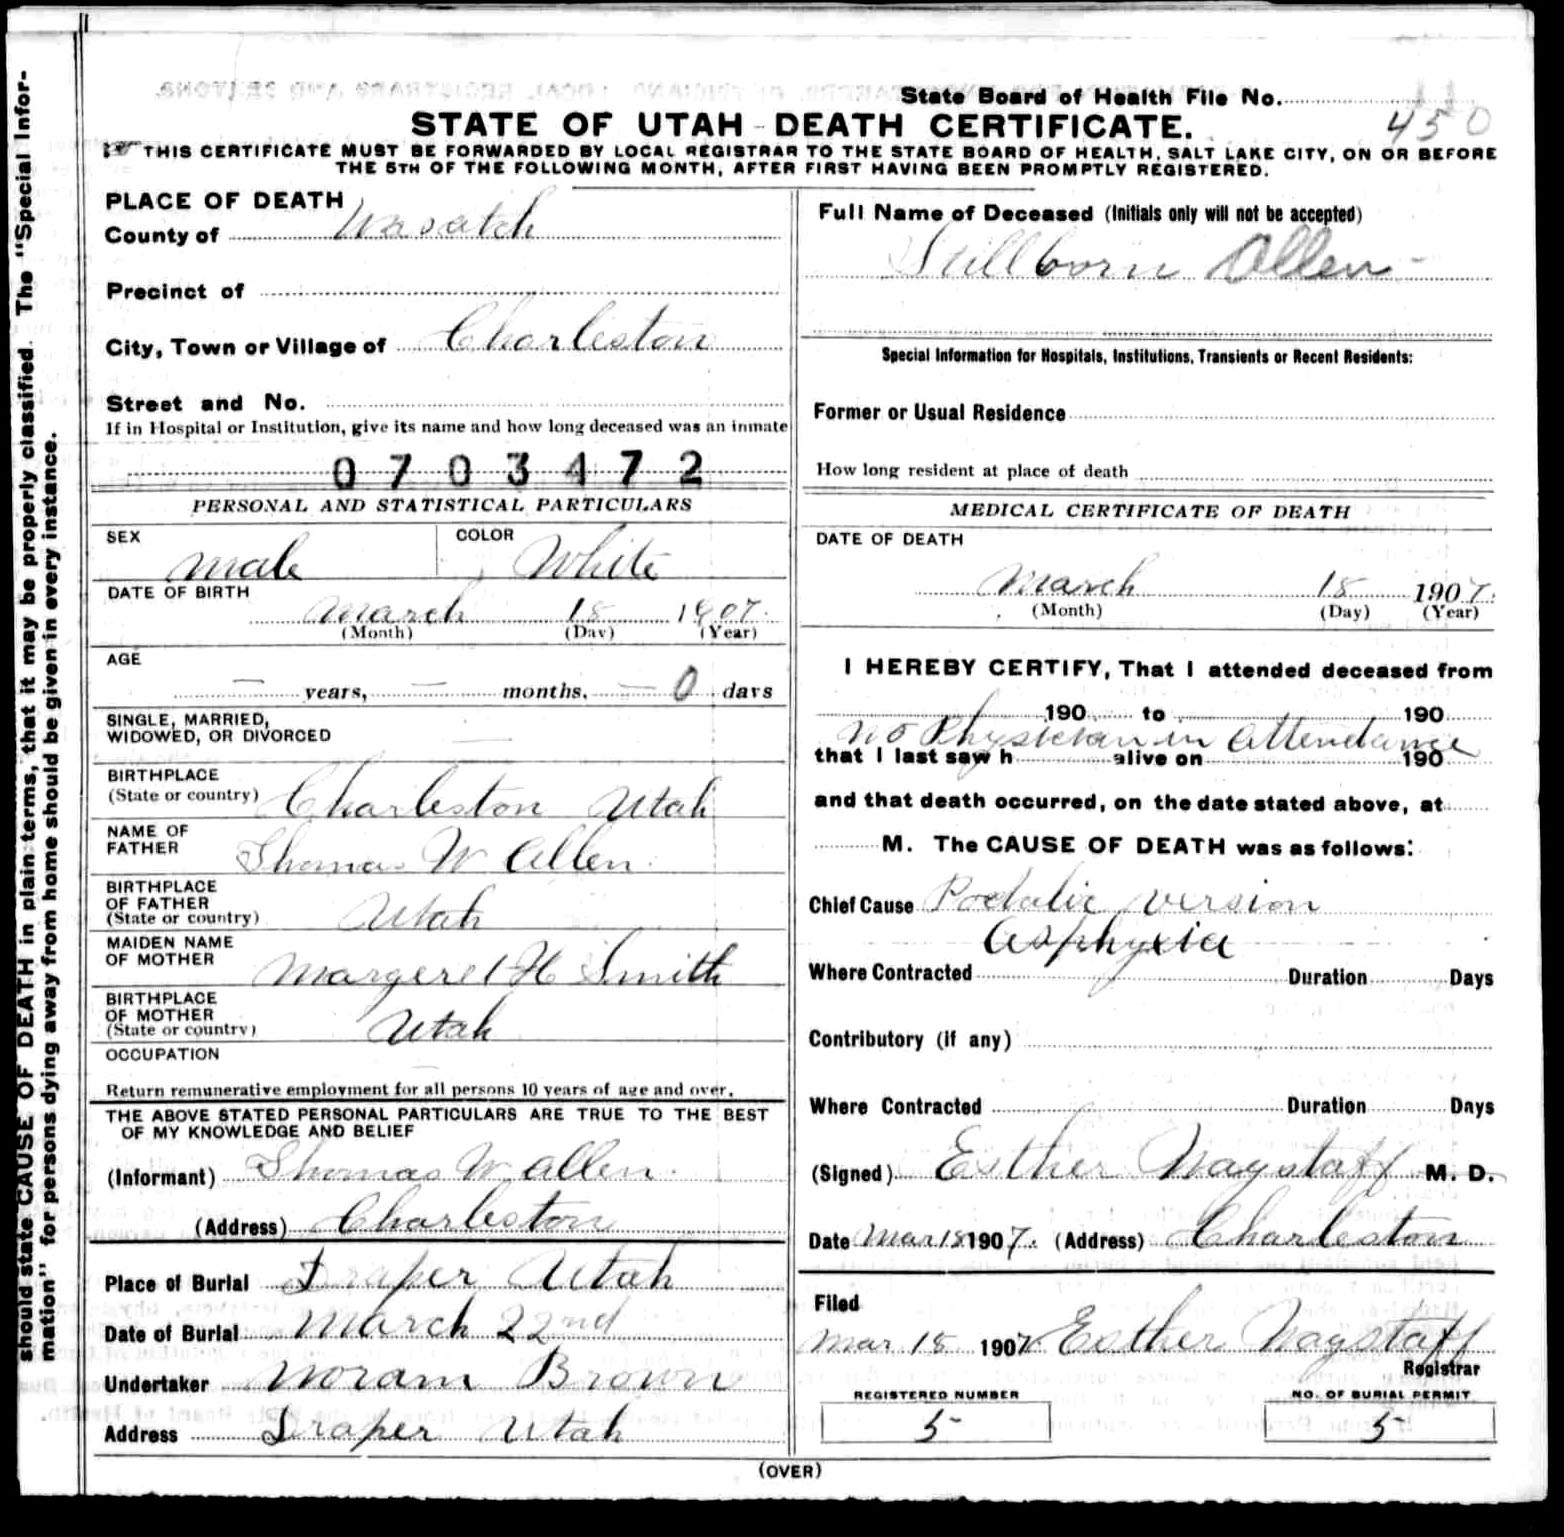 State Board of Health File No.
450
STATE OF UTAH - DEATH CERTIFICATE.
THIS CERTIFICATE MUST BE FORWARDED BY LOCAL REGISTRAR TO THE STATE BOARD OF HEALTH, SALT LAKE CITY, ON OR BEFORE
THE 5TH OF THE FOLLOWING MONTH, AFTER FIRST HAVING BEEN PROMPTLY REGISTERED.
should state CAUSE OF DEATH in plain terms, that it may be properly classified. The "Special Infor-
mation" for persons dying away from home should be given in every instance.
PLACE OF DEATH
County of Wasatch
Precinct of
City, Town or Village of Charleston
Street and No.
If in Hospital or Institution, give its name and how long deceased was an inmate
0703472
PERSONAL AND STATISTICAL PARTICULARS
SEX COLOR
Male White
DATE OF BIRTH
March 18 1907.
(Month) (Day) (Year)
AGE
— years, — months, — 0 days
SINGLE, MARRIED,
WIDOWED, OR DIVORCED —
BIRTHPLACE
(State or country) Charleston Utah
NAME OF
FATHER Thomas W Allen
BIRTHPLACE
OF FATHER
(State or country) Utah
MAIDEN NAME
OF MOTHER Margeret H Smith
BIRTHPLACE
OF MOTHER
(State or country) Utah
OCCUPATION
Return remunerative employment for all persons 10 years of age and over.
THE ABOVE STATED PERSONAL PARTICULARS ARE TRUE TO THE BEST
OF MY KNOWLEDGE AND BELIEF
(Informant) Thomas W Allen.
(Address) Charleston
Place of Burial Draper Utah
Date of Burial March 22nd
Undertaker Noram Brown
Address Draper Utah
Full Name of Deceased (Initials only will not be accepted)
Stillborn Allen
Special Information for Hospitals, Institutions, Transients or Recent Residents:
Former or Usual Residence
How long resident at place of death
MEDICAL CERTIFICATE OF DEATH
DATE OF DEATH
March 18 1907.
(Month) (Day) (Year)
I HEREBY CERTIFY, That I attended deceased from
190 to 190
No Physician in Attendance
that I last saw h alive on 190
and that death occurred, on the date stated above, at
M. The CAUSE OF DEATH was as follows:
Chief Cause Podalic version
Asphyxia
Where Contracted Duration Days
Contributory (if any)
Where Contracted Duration Days
(Signed) Esther Wagstaff M. D.
Date Mar 18 1907. (Address) Charleston
Filed
Mar 18 1907 Esther Wagstaff
Registrar
REGISTERED NUMBER NO. OF BURIAL PERMIT
5 5
(OVER)